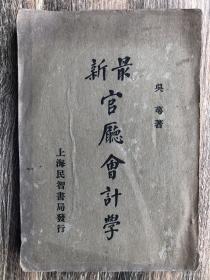 最新
官廳會計學
吳萼著
上海民智書局發行